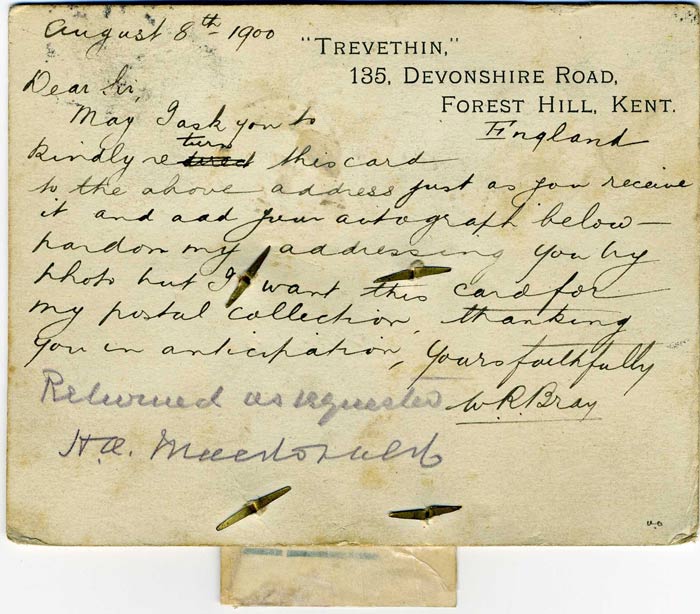 August 8th 1900
"TREVETHIN,"
135, DEVONSHIRE ROAD,
FOREST HILL, KENT.
England
Dear Sir,
May I ask you to
kindly return this card
to the above address just as you receive
it and add your autograph below—
pardon my addressing you by
photo but I want this card for
my postal collection, thanking
you in anticipation, Yours faithfully
W. R. Bray
Returned as requested
H. A. Macdonald